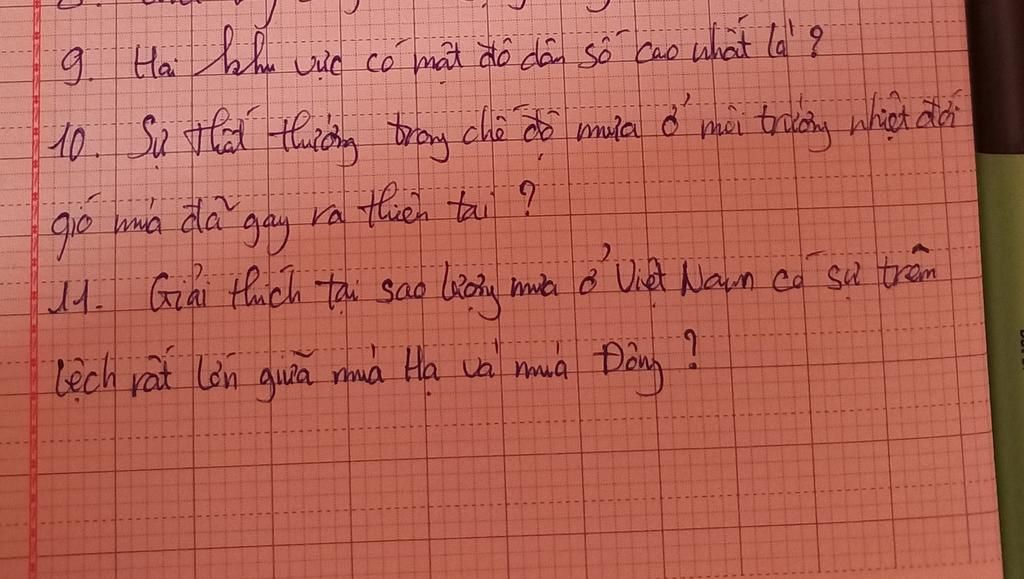 9. Hai khu vực có mật độ dân số cao nhất là ?
10. Sự thất thường trong chế độ mưa ở môi trường nhiệt đới
gió mùa đã gây ra thiên tai ?
11. Giải thích tại sao lượng mưa ở Việt Nam có sự trênh
lệch rất lớn giữa mùa Hạ và mùa Đông ?